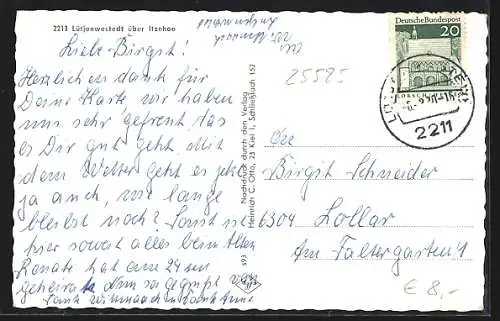 2211 Lütjenwestedt über Itzehoe
Liebe Birgit!
Herzlichen dank für
Deine Karte wir haben
uns sehr gefreut das
es Dir gut geht. Mit
dem Wetter geht es jetzt
ja auch, wie lange
bleibst noch? Sonst ist
hier soweit alles beim Alten
Renate hat am 24ten
geheiratet
Nachdruck durch den Verlag
Heinrich C. Otto, 23 Kiel 1, Schließfach 152
593
25525
Deutsche Bundespost
20
LORSCH
2211
Birgit Schneider
6304 Lollar
Am Faltergarten 1
€ 8,-